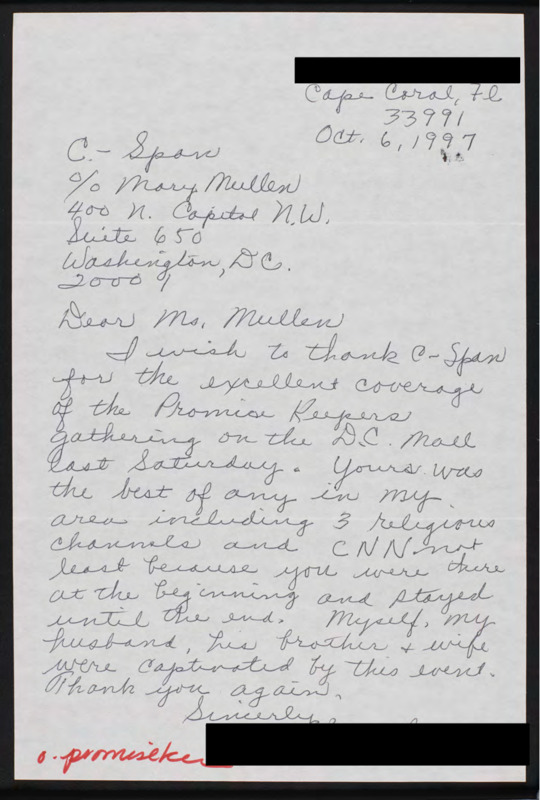 Cape Coral, Fl
33991
Oct. 6, 1997
C.- Span
% Mary Mullen
400 N. Capitol N.W.
Suite 650
Washington, DC.
20001
Dear Ms. Mullen
I wish to thank C-Span
for the excellent coverage
of the Promise Keepers
gathering on the D.C. Mall
last Saturday. Yours was
the best of any in my
area including 3 religious
channels and CNN not
least because you were there
at the beginning and stayed
until the end. Myself, my
husband, his brother & wife
were captivated by this event.
Thank you again.
Sincerely